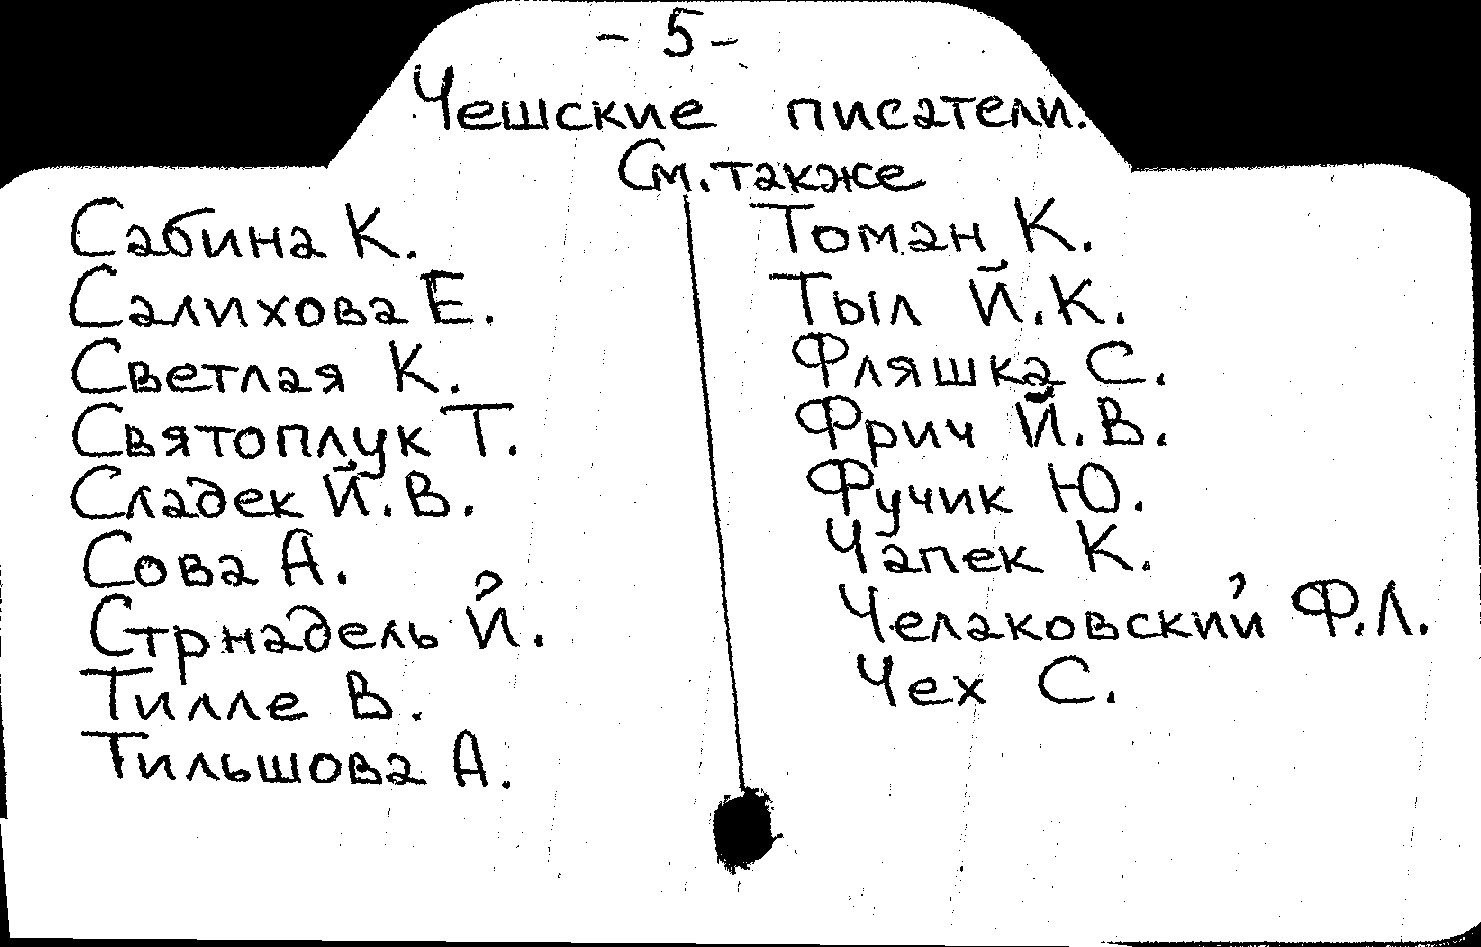 - 5 -
Чешские писатели.
См. также
Сабина К.
Салихова Е.
Светлая К.
Святоплук Т.
Сладек Й.В.
Сова А.
Стрнадель Й.
Тилле В.
Тильшова А.
Томан К.
Тыл Й.К.
Фляшка С.
Фрич Й.В.
Фучик Ю.
Чапек К.
Челаковский Ф.Л.
Чех С.